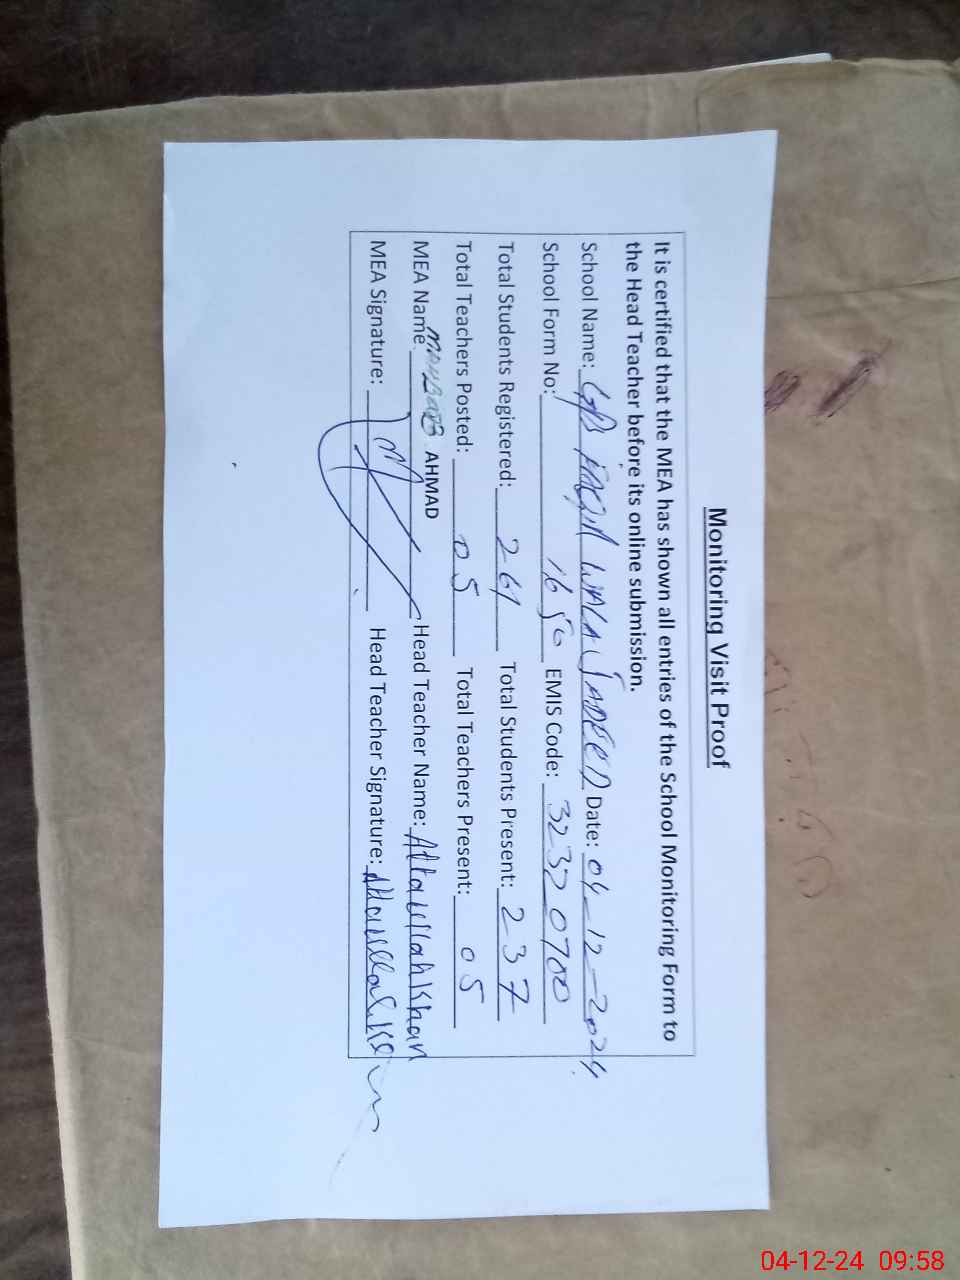 Monitoring Visit Proof
It is certified that the MEA has shown all entries of the School Monitoring Form to
the Head Teacher before its online submission.
School Name: WALA JADEED Date: 04-12-2024
School Form No: 1650 EMIS Code: 32320700
Total Students Registered: 261 Total Students Present: 237
Total Teachers Posted: 05 Total Teachers Present: 05
MEA Name AHMAD Head Teacher Name: Attaullah Khan
MEA Signature: Head Teacher Signature: Attaullah Khan
04-12-24 09:58